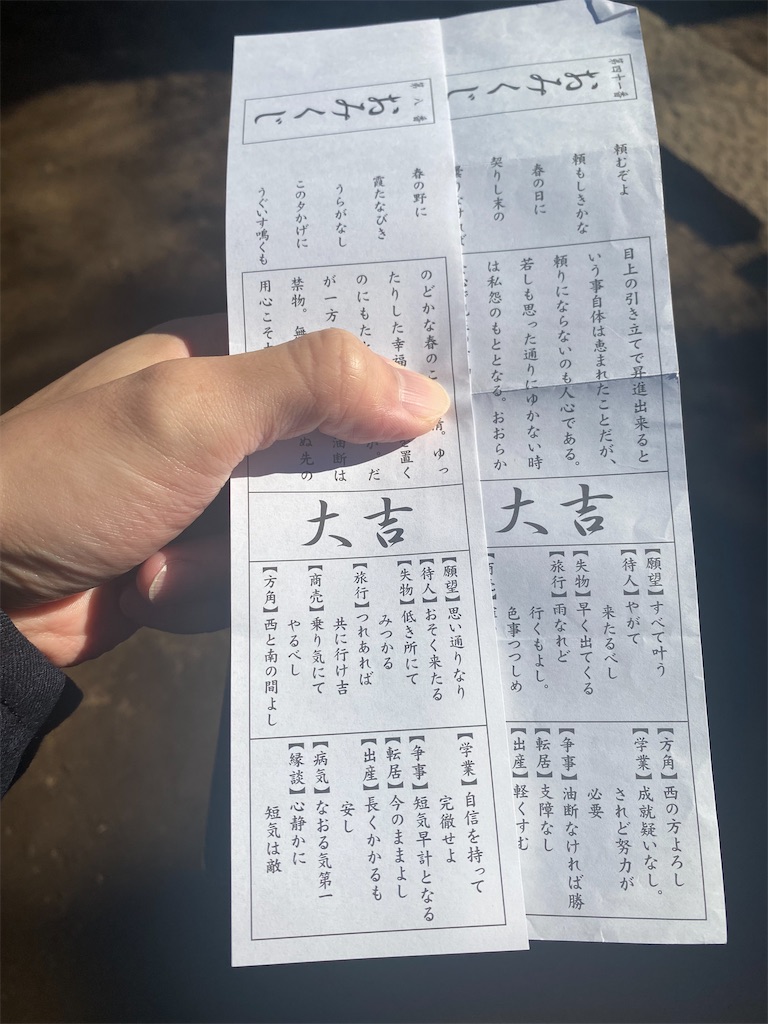 第八番
おみくじ
春の野に
霞たなびき
うらがなし
この夕かげに
うぐいす鳴くも
のどかな春の 情。ゆっ
たりした幸福 を置く
のにもた だ
が一方 油断は
禁物。無 ぬ先の
用心こそ
大吉
【願望】思い通りなり
【待人】おそく来たる
【失物】低き所にて
みつかる
【旅行】つれあれば
共に行け吉
【商売】乗り気にて
やるべし
【方角】西と南の間よし
【学業】自信を持って
完徹せよ
【争事】短気早計となる
【転居】今のままよし
【出産】長くかかるも
安し
【病気】なおる気第一
【縁談】心静かに
短気は敵
第四十一番
おみくじ
頼むぞよ
頼もしきかな
春の日に
契りし末の
目上の引き立てで昇進出来ると
いう事自体は恵まれたことだが、
頼りにならないのも人心である。
若しも思った通りにゆかない時
は私怨のもととなる。おおらか
大吉
【願望】すべて叶う
【待人】やがて
来たるべし
【失物】早く出てくる
【旅行】雨なれど
行くもよし。
色事つつしめ
【方角】西の方よろし
【学業】成就疑いなし。
されど努力が
必要
【争事】油断なければ勝
【転居】支障なし
【出産】軽くすむ